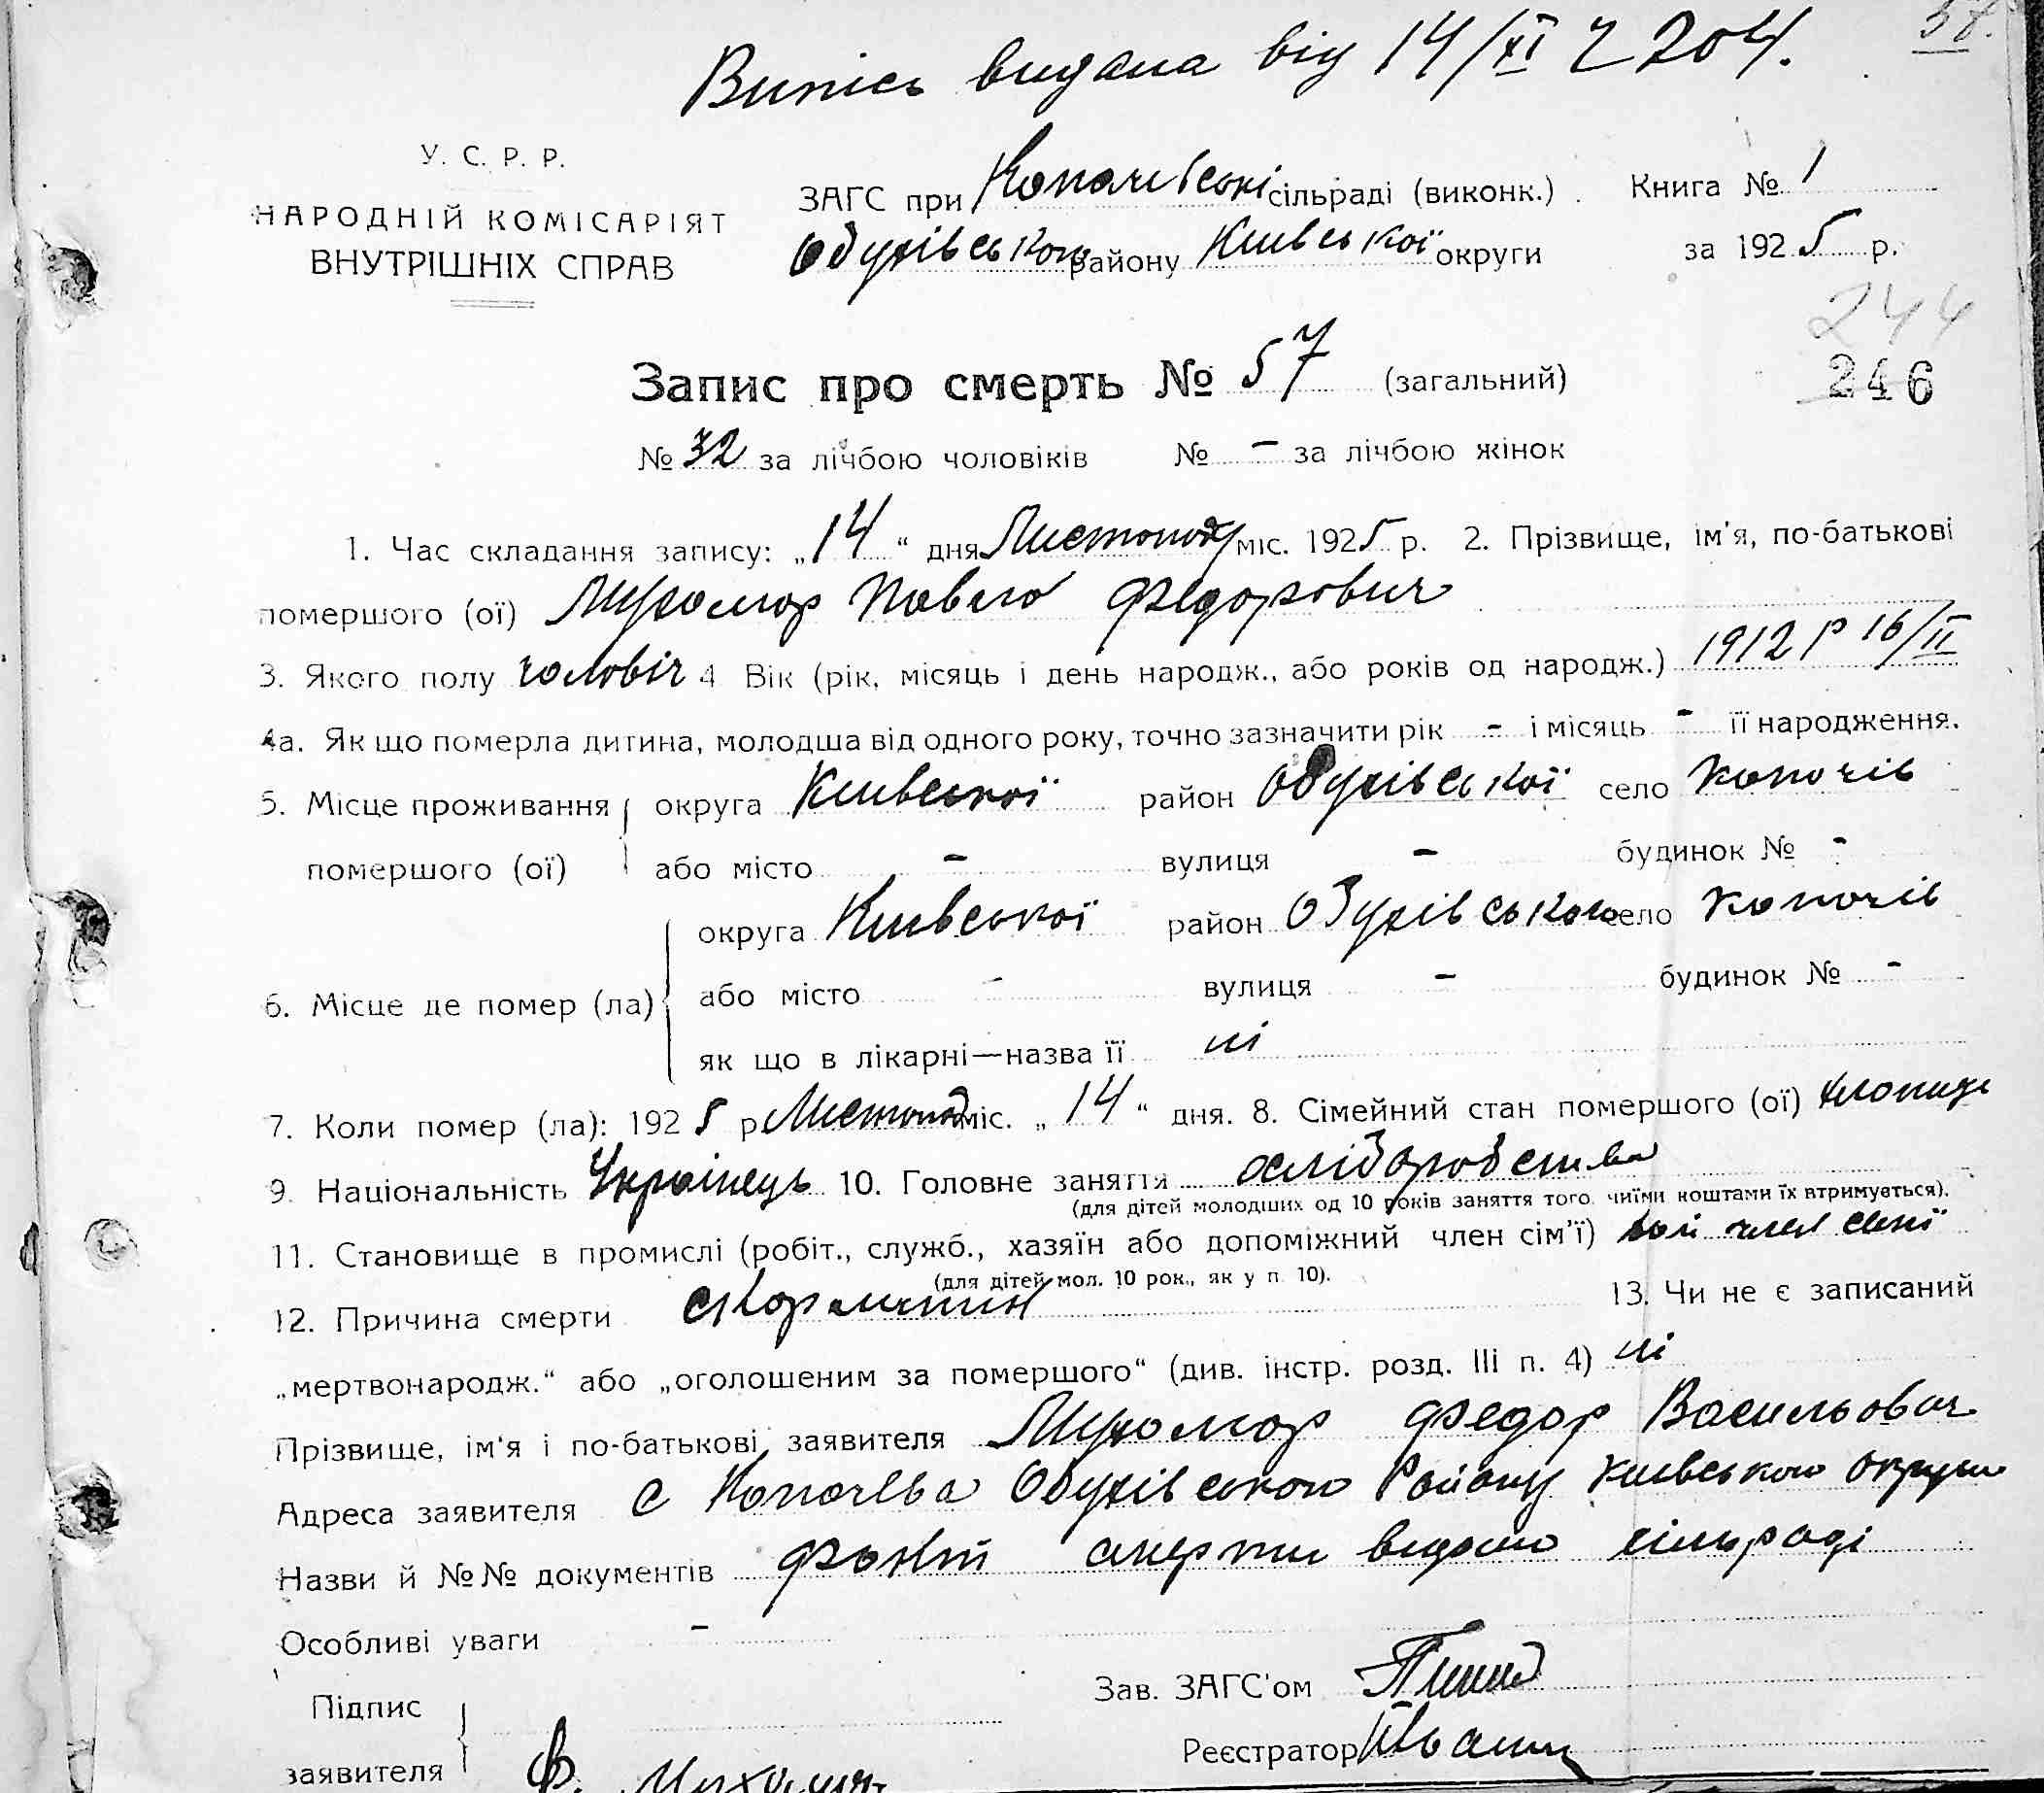 Випись видана від 14/XI Ч 204.
У. С. Р. Р.
НАРОДНІЙ КОМІСАРІЯТ
ВНУТРІШНІХ СПРАВ
ЗАГС при Копачівські сільраді (виконк.) Книга № 1
Обухівського району Київської округи за 1925 р.
244
Запис про смерть № 57 (загальний)
246
№ 32 за лічбою чоловіків № - за лічбою жінок
1. Час складання запису: „14“ дня Листопад міс. 1925 р. 2. Прізвище, ім'я, по-батькові
помершого (ої) Мухомор Павло Федорович
3. Якого полу чоловіч 4 Вік (рік, місяць і день народж., або років од народж.) 1912 р 16/II
4а. Як що померла дитина, молодша від одного року, точно зазначити рік - і місяць - її народження.
5. Місце проживання округа Київської район Обухівської село Копачів
помершого (ої) або місто - вулиця - будинок № -
округа Київської район Обухівського село Копачів
6. Місце де помер (ла) або місто - вулиця - будинок № -
як що в лікарні—назва її ні
7. Коли помер (ла): 1925 р Листопад міс. „14“ дня. 8. Сімейний стан помершого (ої) хлопець
9. Національність Українець 10. Головне заняття хліборобства
(для дітей молодших од 10 років заняття того, чиїми коштами їх втримується).
11. Становище в промислі (робіт., служб., хазяїн або допоміжний член сім'ї) член сімї
(для дітей мол. 10 рок., як у п. 10).
12. Причина смерти скорлатин 13. Чи не є записаний
„мертвонародж.“ або „оголошеним за помершого“ (див. інстр. розд. III п. 4) ні
Прізвище, ім'я і по-батькові заявителя Мухомор Федор Васильович
Адреса заявителя с Копачева Обухівського Району Київського округи
Назви й №№ документів факт смерти видомо сільраді
Особливі уваги -
Зав. ЗАГС'ом
Підпис
Реєстратор
заявителя Ф. Мухомор